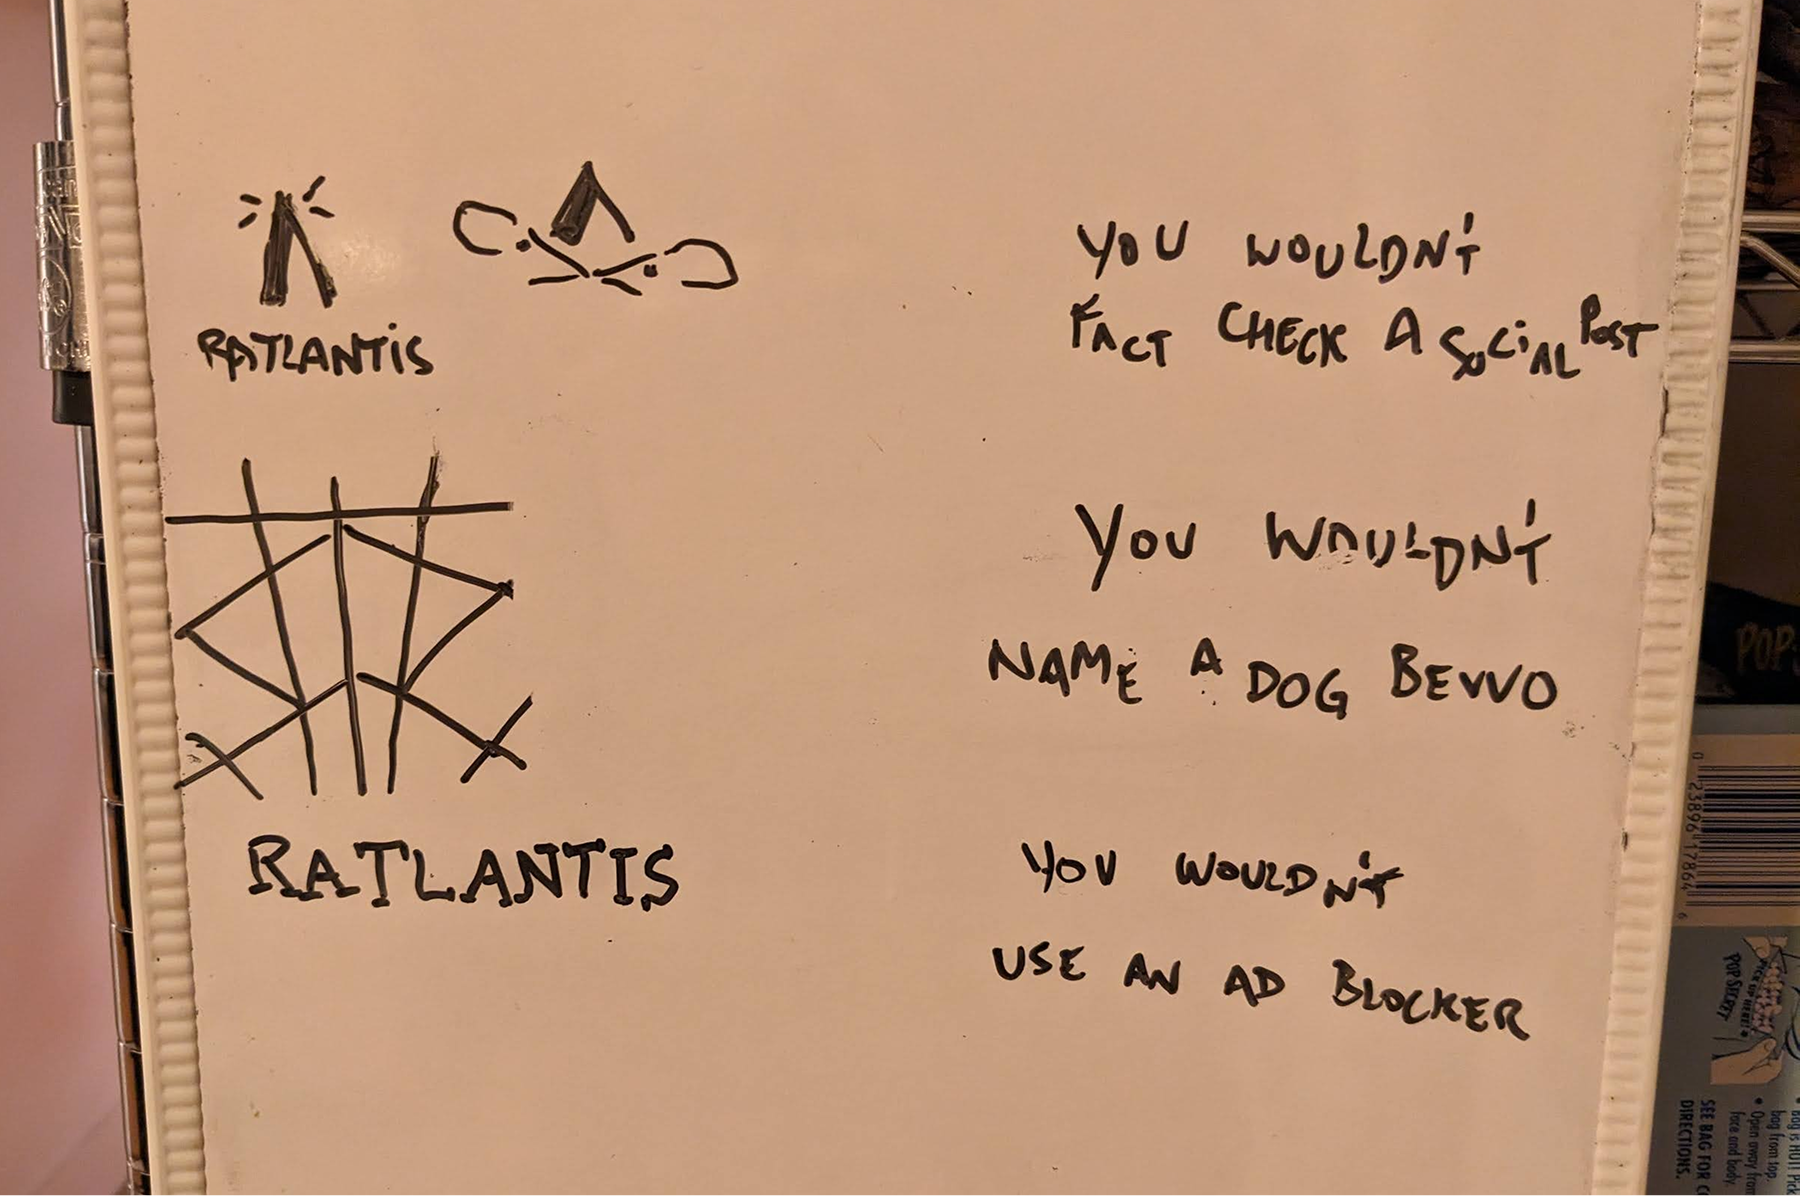 RATLANTIS
YOU WOULDN'T
FACT CHECK A SOCIAL POST
YOU WOULDN'T
NAME A DOG BEVVO
RATLANTIS
YOU WOULDN'T
USE AN AD BLOCKER
POP
0 23896 17864 6
PICK UP HERE!
POP SECRET
bag from top.
Open away from
face and body.
SEE BAG FOR
DIRECTIONS.